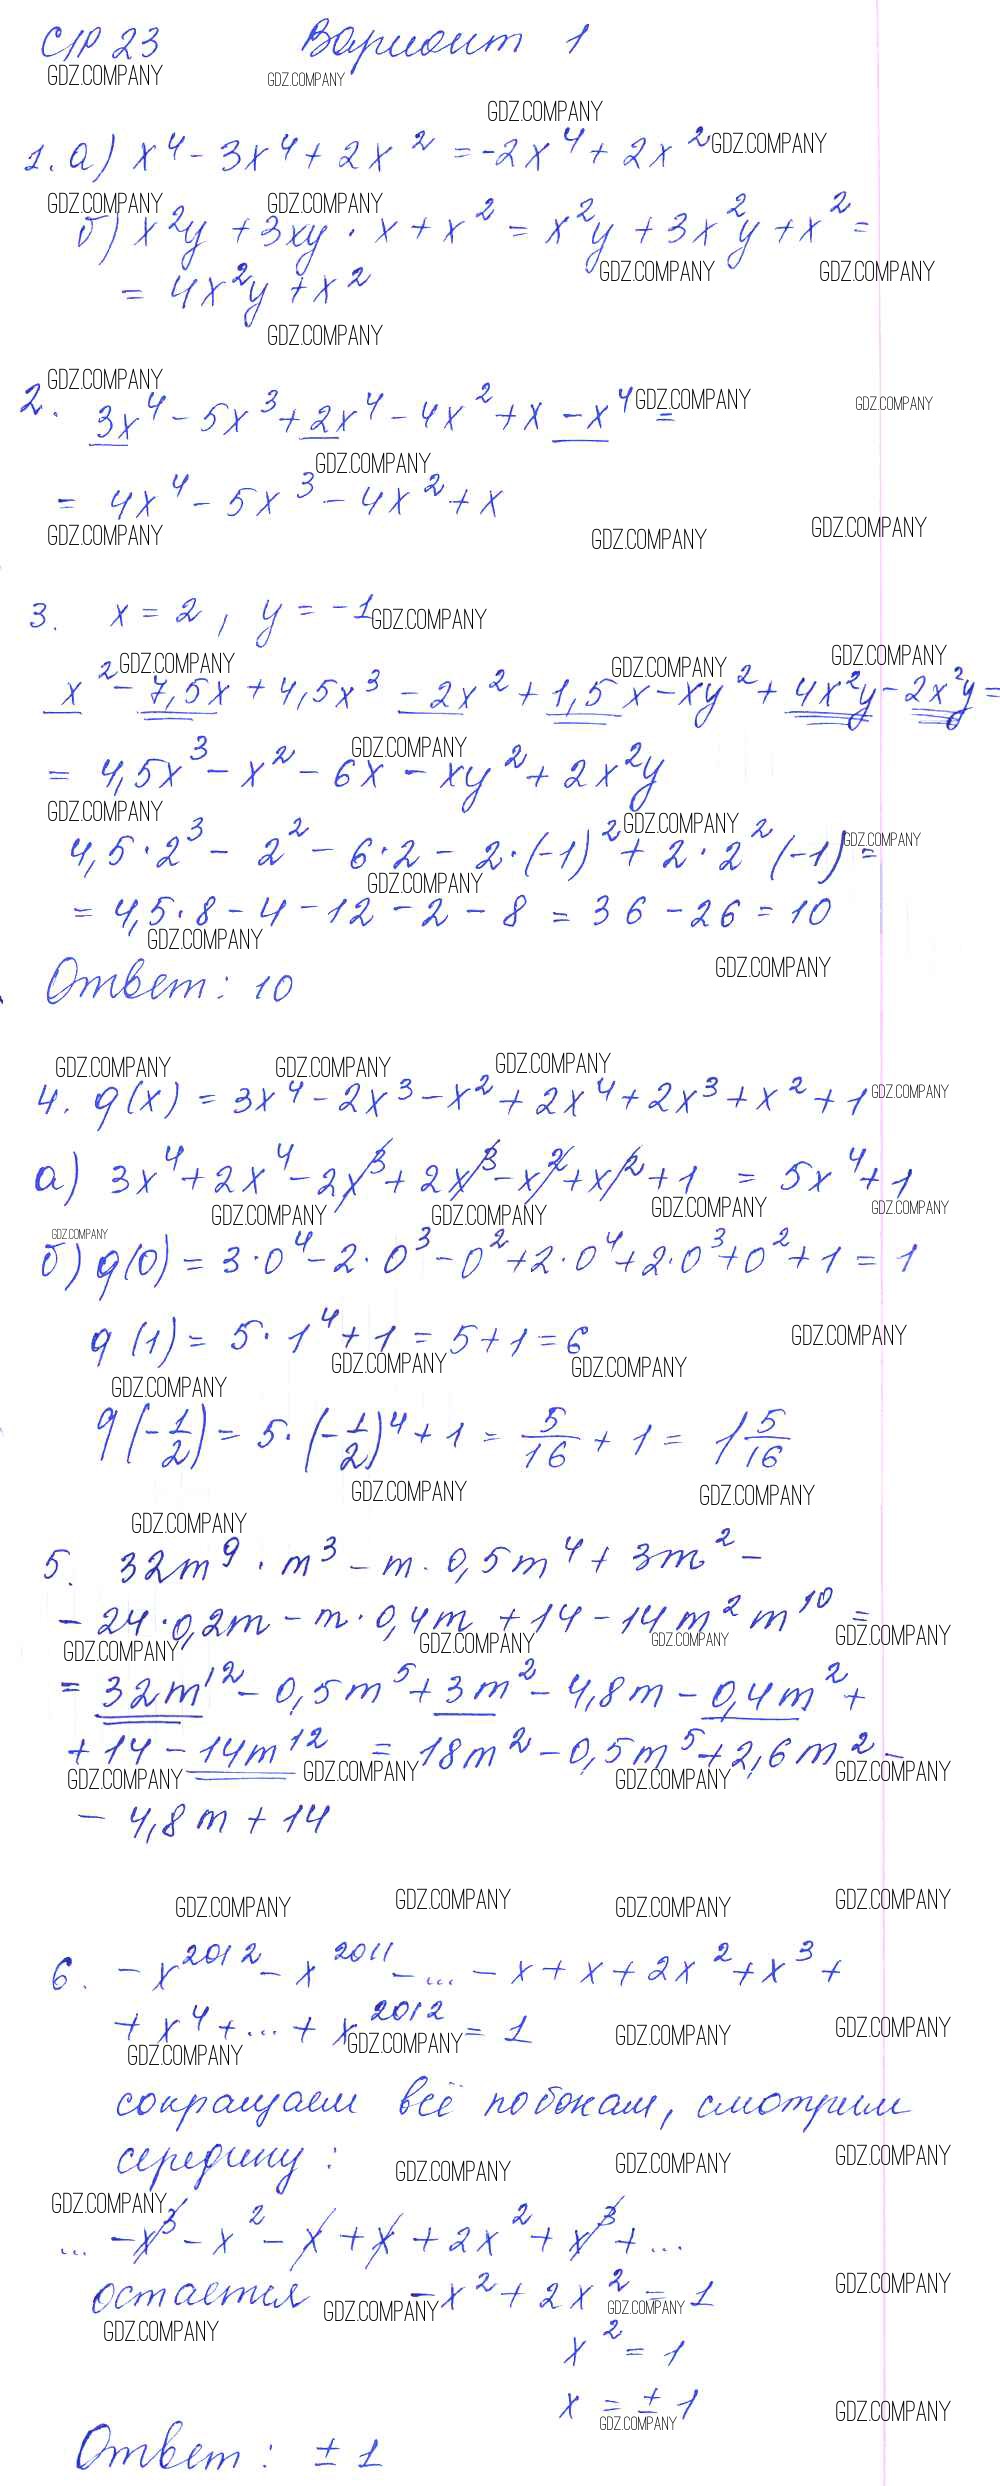 С/Р 23 Вариант 1
1. а) x⁴ - 3x⁴ + 2x² = -2x⁴ + 2x²
б) x²y + 3xy · x + x² = x²y + 3x²y + x² =
= 4x²y + x²
2. 3x⁴ - 5x³ + 2x⁴ - 4x² + x - x⁴ =
= 4x⁴ - 5x³ - 4x² + x
3. x = 2, y = -1
x² - 7,5x + 4,5x³ - 2x² + 1,5x - xy² + 4x²y - 2x²y =
= 4,5x³ - x² - 6x - xy² + 2x²y
4,5 · 2³ - 2² - 6 · 2 - 2 · (-1)² + 2 · 2² (-1) =
= 4,5 · 8 - 4 - 12 - 2 - 8 = 36 - 26 = 10
Ответ: 10
4. q(x) = 3x⁴ - 2x³ - x² + 2x⁴ + 2x³ + x² + 1
а) 3x⁴ + 2x⁴ - 2x³ + 2x³ - x² + x² + 1 = 5x⁴ + 1
б) q(0) = 3 · 0⁴ - 2 · 0³ - 0² + 2 · 0⁴ + 2 · 0³ + 0² + 1 = 1
q(1) = 5 · 1⁴ + 1 = 5 + 1 = 6
q(-1/2) = 5 · (-1/2)⁴ + 1 = 5/16 + 1 = 1 5/16
5. 32m⁹ · m³ - m · 0,5m⁴ + 3m² -
- 24 · 0,2m - m · 0,4m + 14 - 14m² m¹⁰ =
= 32m¹² - 0,5m⁵ + 3m² - 4,8m - 0,4m² +
+ 14 - 14m¹² = 18m² - 0,5m⁵ + 2,6m² -
- 4,8m + 14
6. -x²⁰¹² - x²⁰¹¹ - ... - x + x + 2x² + x³ +
+ x⁴ + ... + x²⁰¹² = 1
сокращаем всё по бокам, смотрим
середину:
... - x³ - x² - x + x + 2x² + x³ + ...
остается -x² + 2x² = 1
x² = 1
x = ± 1
Ответ: ± 1
GDZ.COMPANY